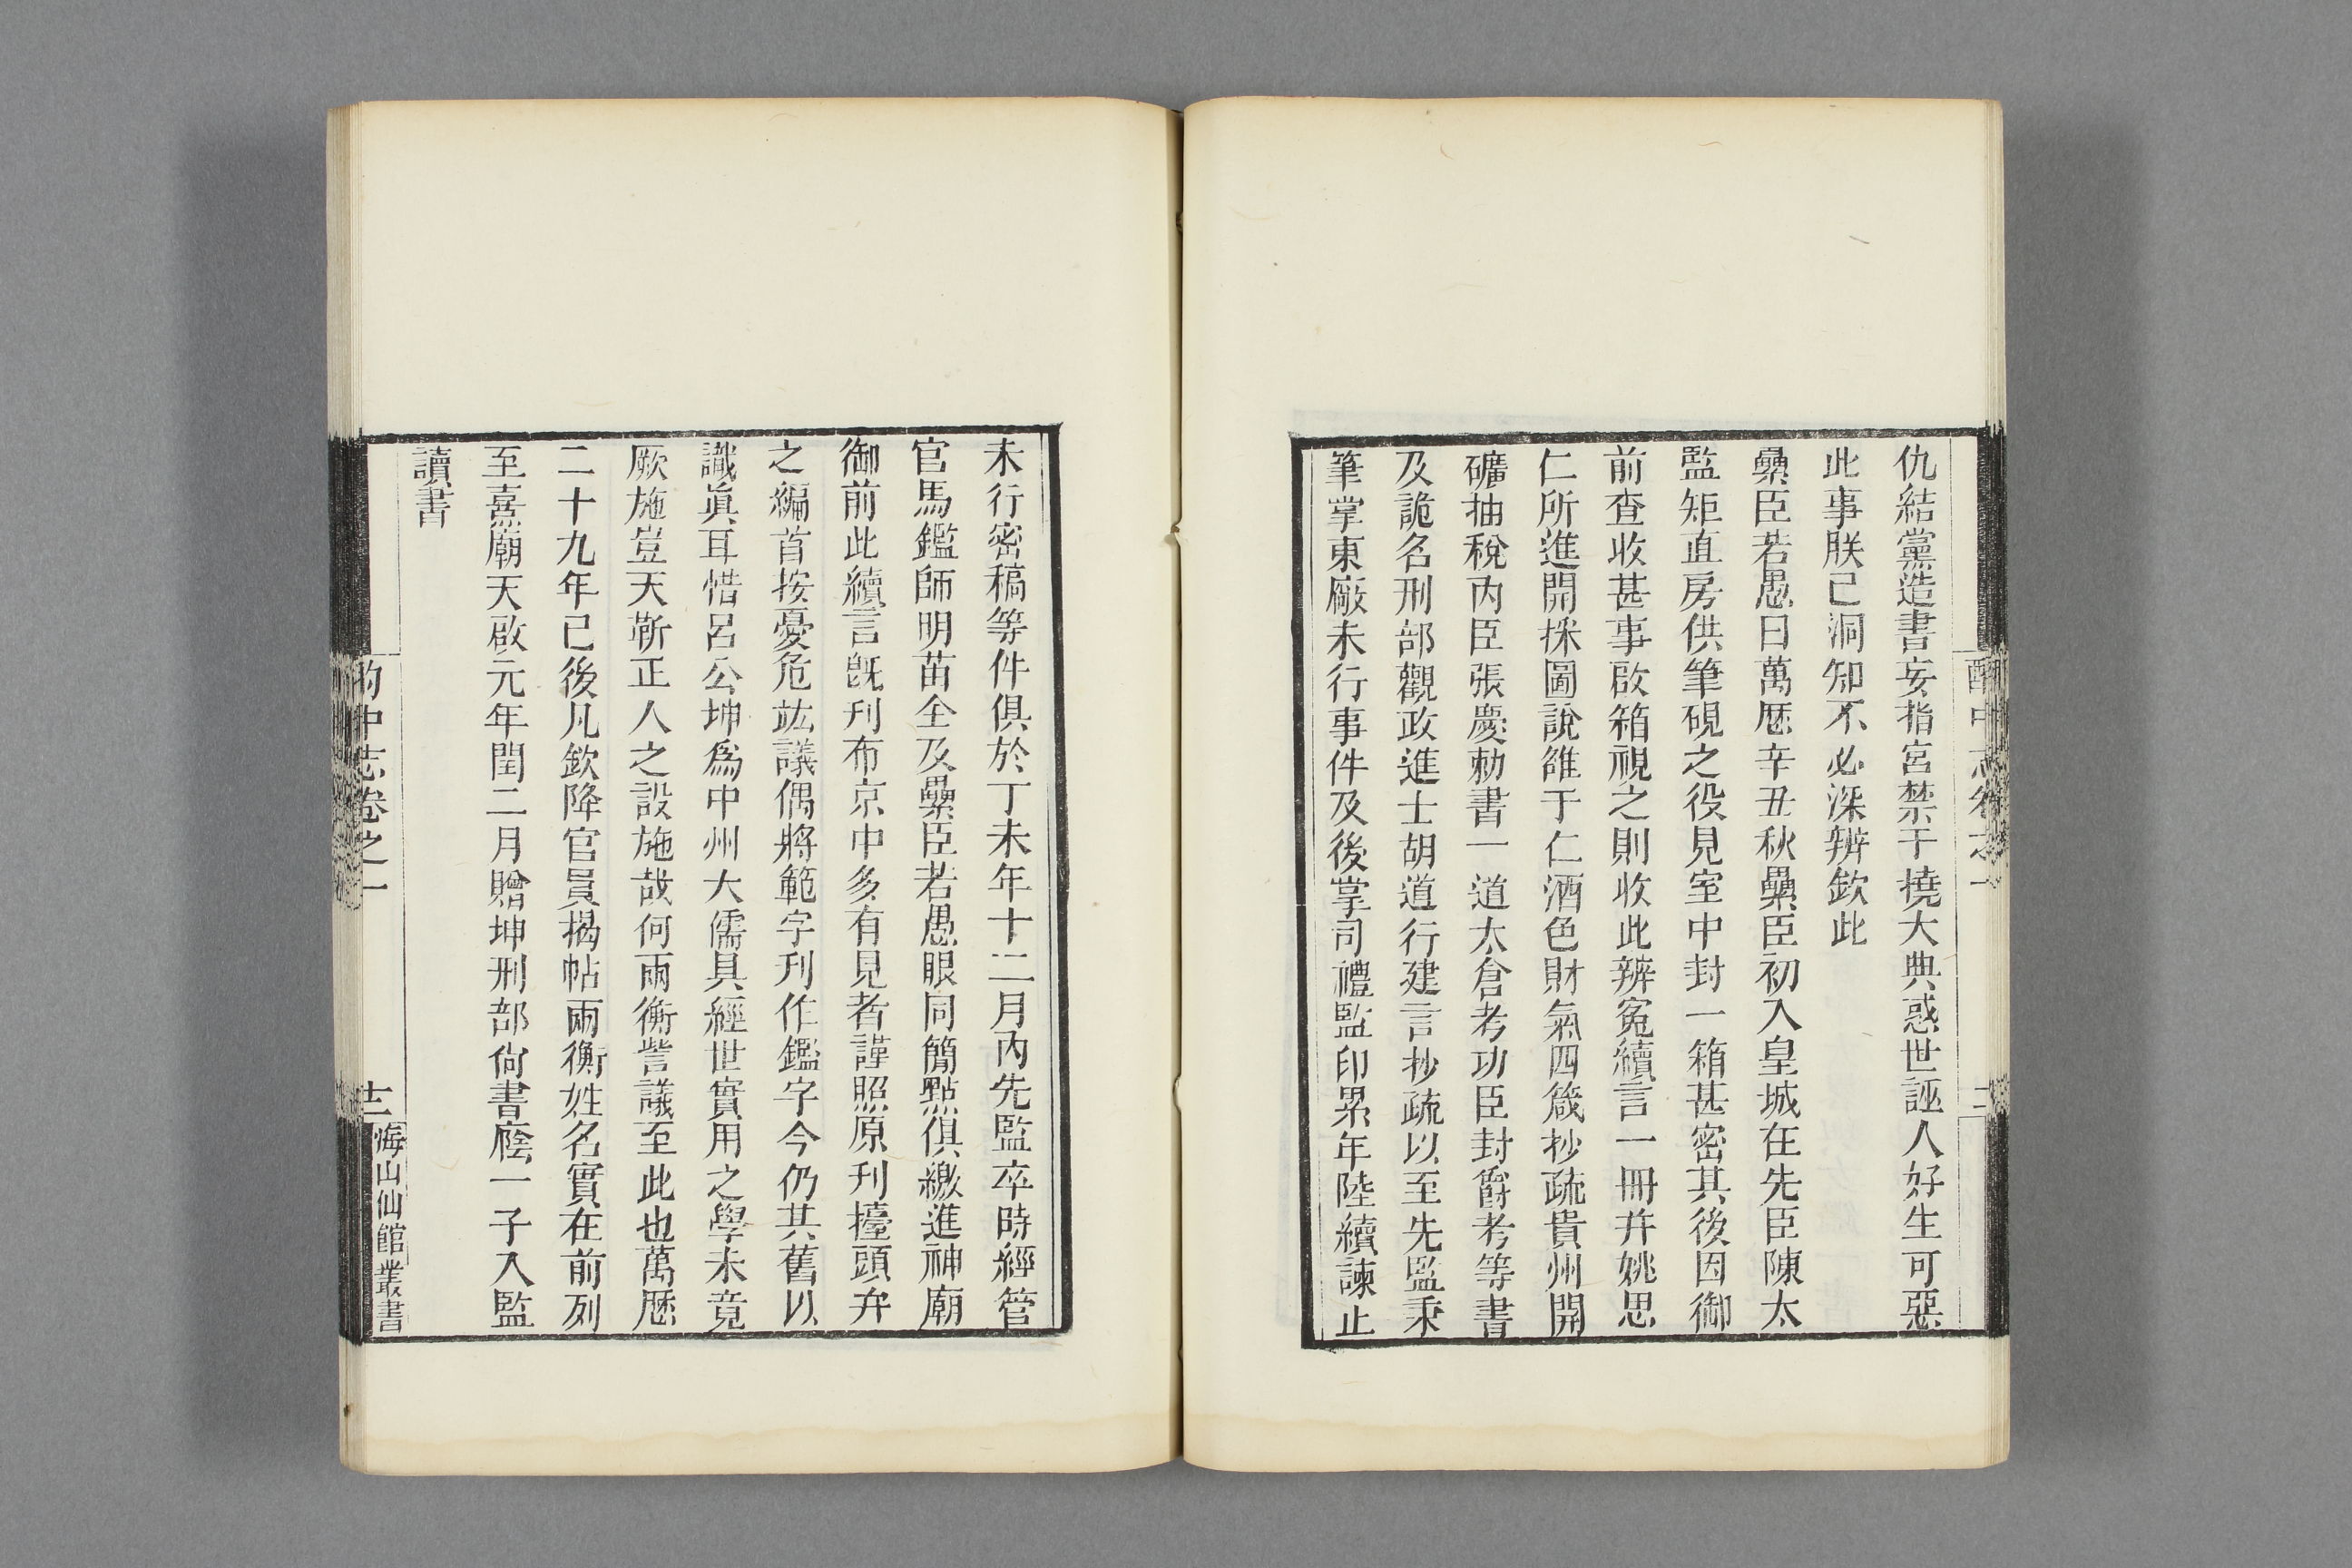 仇結黨造書妄指宮禁干撓大典惑世誣人好生可惡
此事朕已洞知不必深辨欽此
纍臣若愚曰萬厯辛丑秋纍臣初入皇城在先臣陳太
監矩直房供筆硯之役見室中封一箱甚密其後因御
前查收甚事啟箱視之則收此辨冤續言一冊并姚思
仁所進開採圖說雒于仁酒色財氣四箴抄疏貴州開
礦抽稅內臣張慶勅書一道太倉考功臣封爵考等書
及詭名刑部觀政進士胡道行建言抄疏以至先監秉
筆掌東廠未行事件及後掌司禮監印累年陸續諫止
未行密稿等件俱於丁未年十二月內先監卒時經管
官馬鑑師明苗全及纍臣若愚眼同簡點俱繳進神廟
御前此續言旣刋布京中多有見者謹照原刋擡頭弁
之編首按憂危竑議偶將範字刋作鑑字今仍其舊以
識眞耳惜呂公坤爲中州大儒具經世實用之學未竟
厥施豈天靳正人之設施哉何兩衡訾議至此也萬厯
二十九年已後凡欽降官員揭帖兩衡姓名實在前列
至熹廟天啟元年閏二月贈坤刑部尙書廕一子入監
讀書
酌中志卷之一
十二
海山仙館叢書